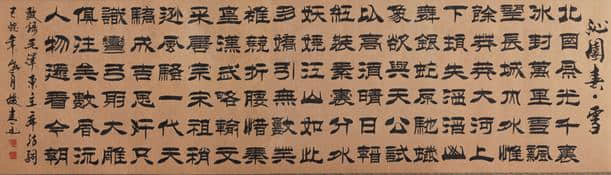 沁園春·雪
北國風光千裏
冰封萬里雪飄
望長城內外惟
餘莽莽大河上
下頓失滔滔山
舞銀蛇原馳蠟
象欲與天公試
比高須晴日看
紅裝素裹分外
妖嬈江山如此
多嬌引無數英
雄競折腰惜秦
皇漢武略輸文
采唐宗宋祖稍
遜風騷一代天
驕成吉思汗只
識彎弓射大雕
俱往矣數風流
人物還看今朝
敬錄毛澤東主席詩詞